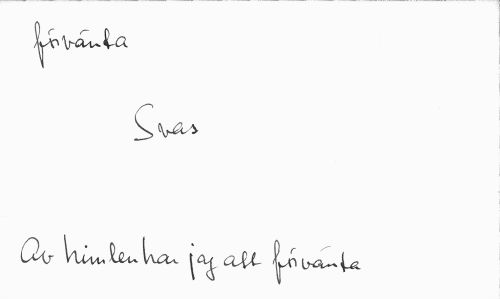 förvänta
Svas
Av himlen har jag att förvänta